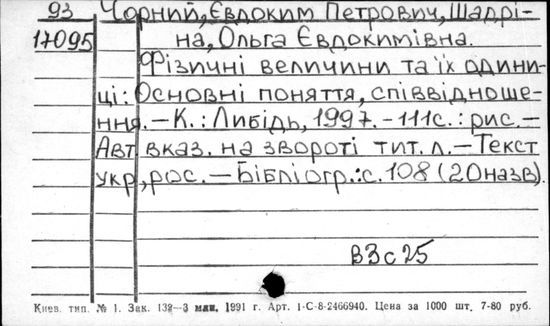 93 Чорний, Євдоким Петрович, Шадрі-
17095 на, Ольга Євдокимівна.
Фізичні величини та їх одини-
ці: Основні поняття, співвідноше-
ння. – К.: Либідь, 1997. - 111с.: рис. –
Авт вказ. на звороті тит. л. – Текст
укр, рос. – Бібліогр.: с. 108 (20 назв).
В3с25
Киев. тип. № 1. Зак. 132—3 млн. 1991 г. Арт. 1-С-8-2466940. Цена за 1000 шт. 7-80 руб.